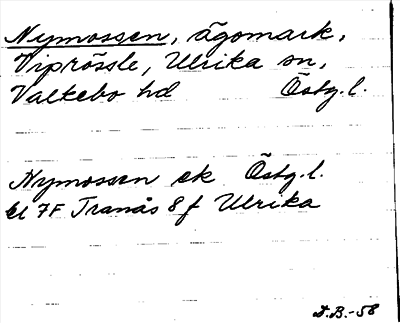 Nymossen, ägomark,
Viprössle, Ulrika sn,
Valkebo hd Östg.l.
Nymossen ek Östg.l.
bl 7F Tranås 8f Ulrika
D.B.-58